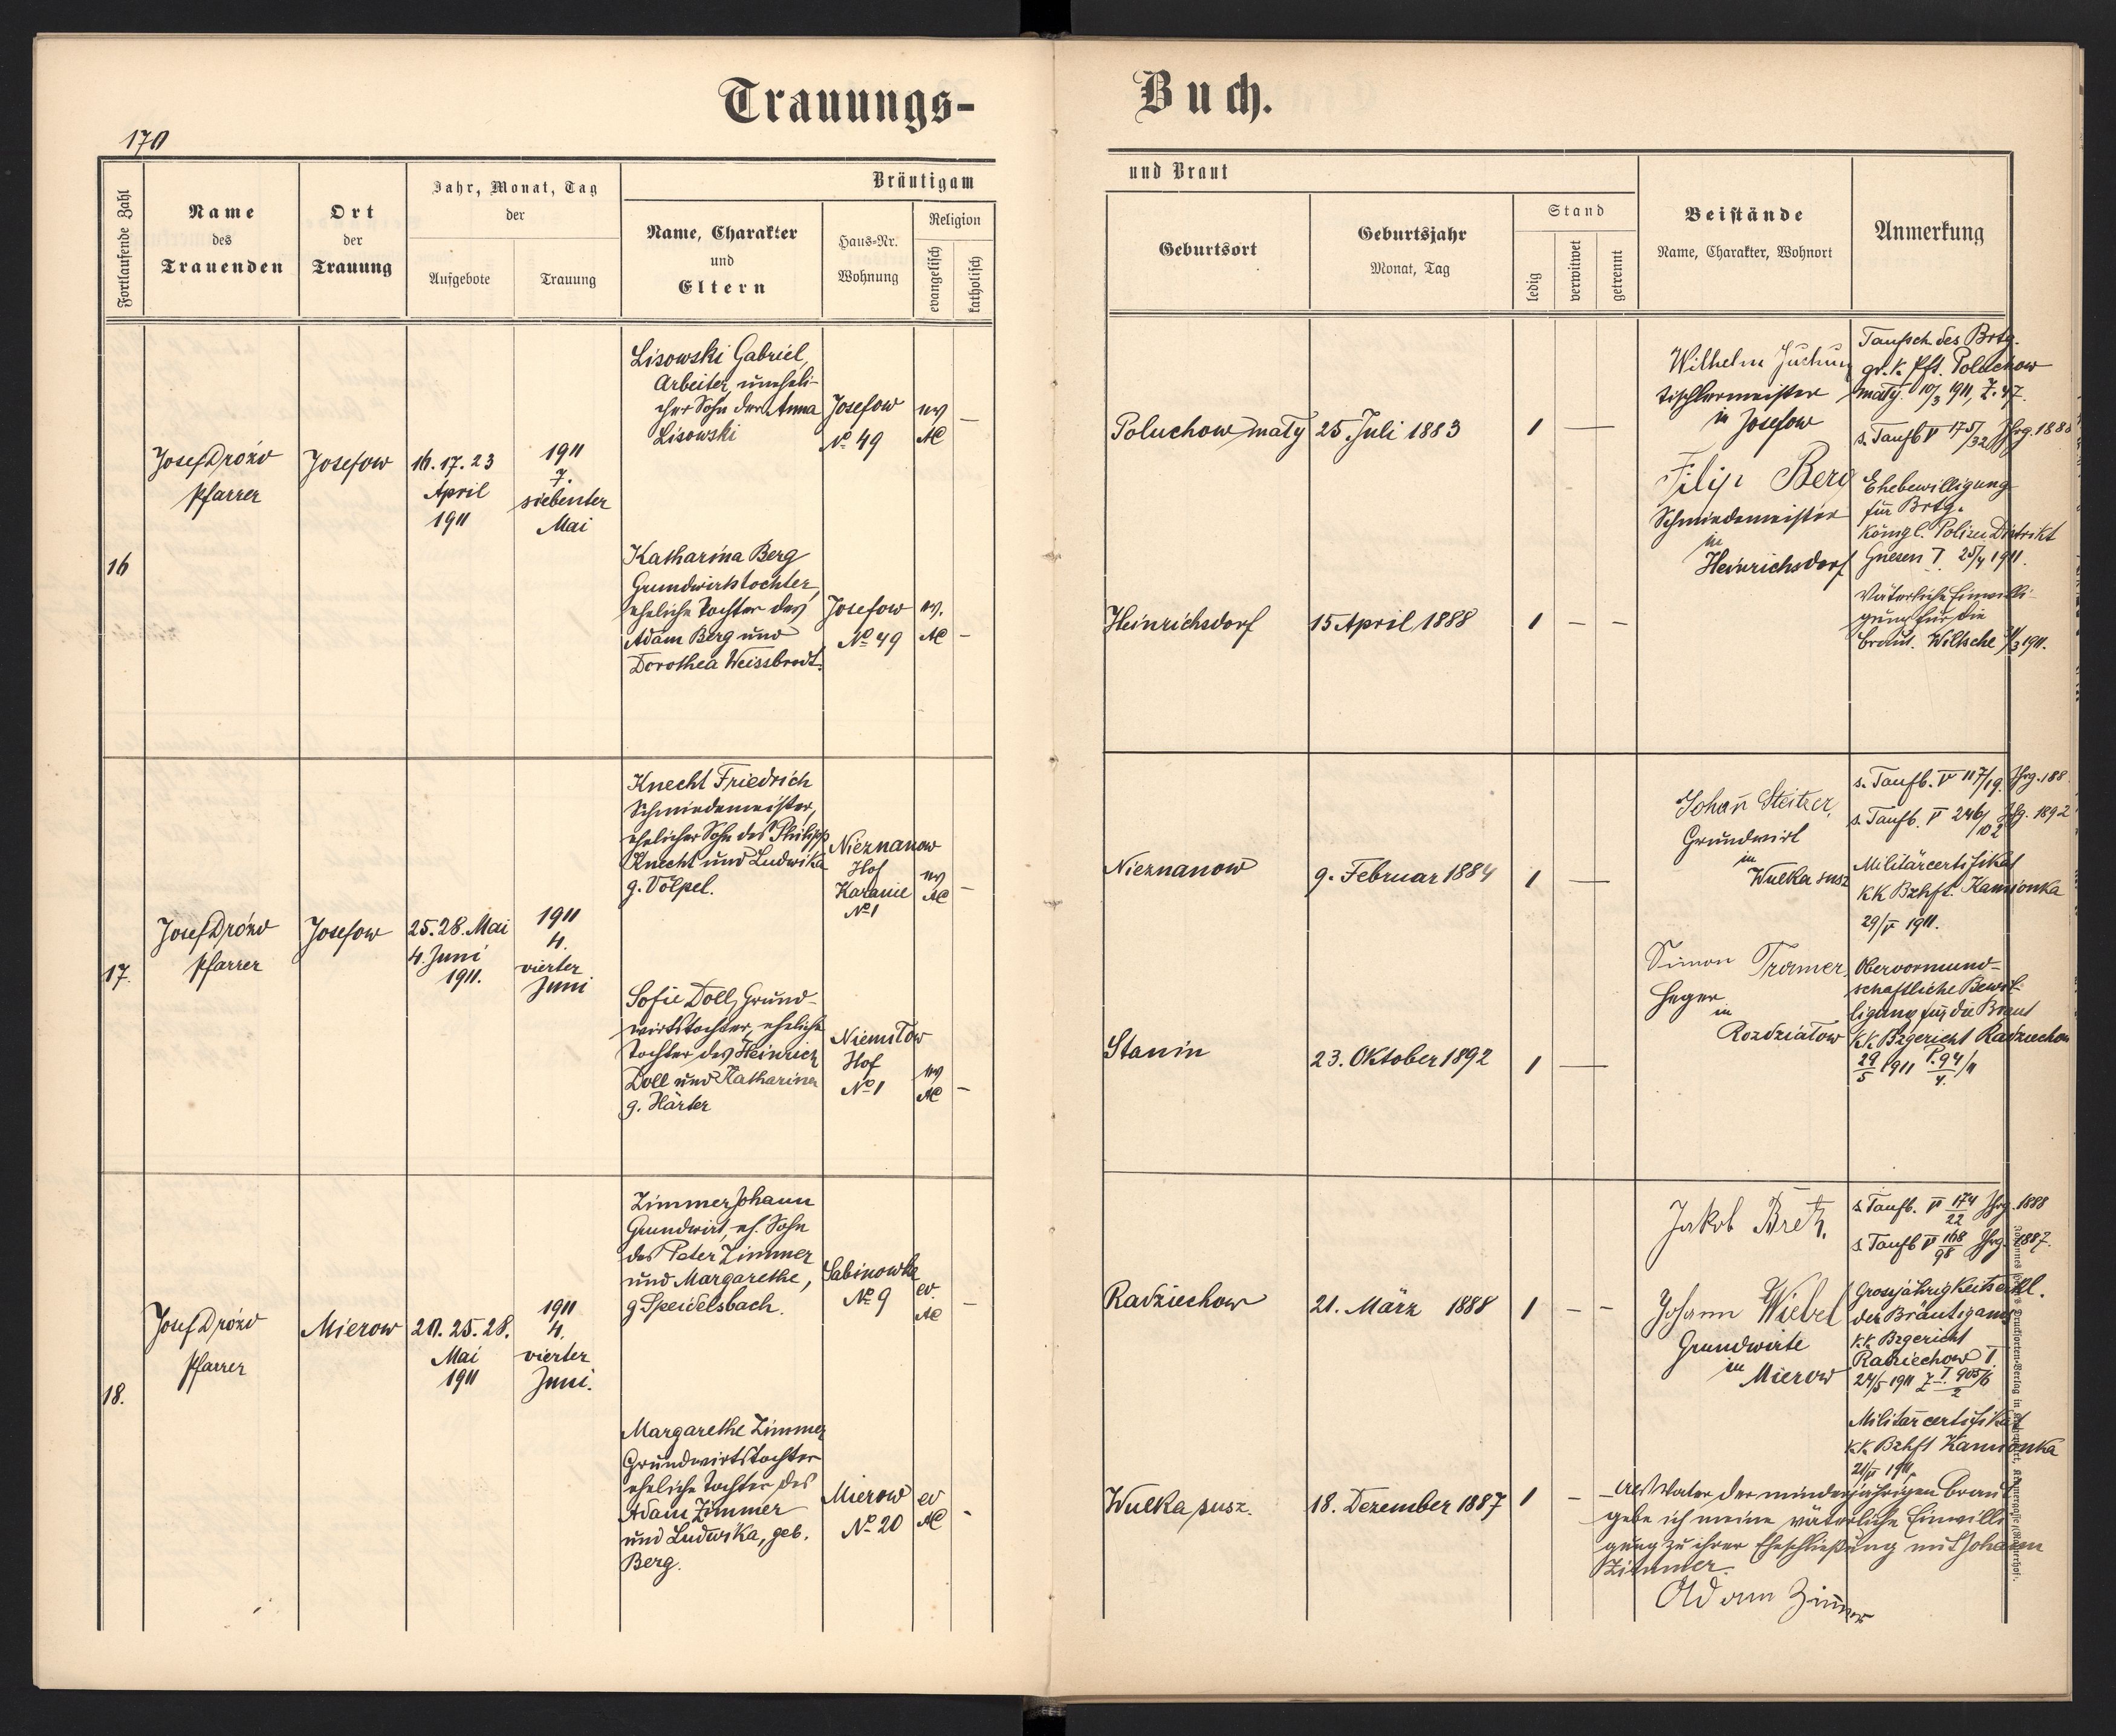 Trauungs-
Buch.
170
Fortlaufende Zahl
Name
des
Trauenden
Ort
der
Trauung
Jahr, Monat, Tag
der
Aufgebote
Trauung
Bräutigam
Name, Charakter
und
Eltern
Haus-Nr.
Wohnung
Religion
evangelisch
katholisch
und Braut
Geburtsort
Geburtsjahr
Monat, Tag
Stand
ledig
verwitwet
getrennt
Beistände
Name, Charakter, Wohnort
Anmerkung
16
Josef Drózd
Pfarrer
Josefow
16. 17. 23
April
1911
1911
7.
siebenter
Mai
Lisowski Gabriel,
Arbeiter, uneheli-
cher Sohn der Anna
Lisowski
Josefow
No 49
ev
AC
—
Poluchow mały
25. Juli 1883
1
—
Wilhelm
Tischlermeister
in Josefow
Taufsch des Brtg.
gr. k. Pft. Poluchow
mały. 10/3 1911, Z. 47.
s. Taufb V 175/32 Jhrg. 188
Katharina Berg
Grundwirtstochter,
eheliche Tochter des
Adam Berg und
Dorothea Weissbrodt.
Josefow
No 49
ev.
AC
—
Heinrichsdorf
15 April 1888
1
—
—
Filip Berg
Schmiedemeister
in
Heinrichsdorf
Ehebewilligung
für Brtg.
Königl. Polizei Distrikt
Gnesen I. 25/4 1911.
Väterliche Einwilli-
gung für die
Braut. Wiltsche 1911.
17.
Josef Drózd
Pfarrer
Josefow
25. 28. Mai
4. Juni
1911.
1911
4.
vierter
Juni
Knecht Friedrich
Schmiedemeister,
ehelicher Sohn des Philipp
Knecht und Ludwika
g. Völpel.
Nieznanow
Hof
Karanie
No 1
ev
AC
—
Nieznanow
9. Februar 1884
1
—
Johan Steitzer,
Grundwirt
in
Wulka susz
s. Taufb. V 117/19. Jhrg. 188
s. Taufb. V 246/102 Jhg. 1892
Militärcertifikat
KK Bzhft. Kamionka
29/V 1911.
Sofie Doll, Grund-
wirtstochter, eheliche
Tochter des Heinrich
Doll und Katharina
g. Härter
Niemiłow
Hof
No 1
ev
AC
—
Stanin
23. Oktober 1892
1
—
Simon Tramer,
Heger
in
Rozdziałow
Obervormund-
schaftliche Bewil-
ligung für die Braut
KK. Bzgericht Radziechow
29/5 1911 P. 94/4. /11
18.
Josef Drózd
Pfarrer
Mierow
20. 25. 28.
Mai
1911
1911
4.
vierter
Juni.
Zimmer Johann
Grundwirt, eh. Sohn
des Peter Zimmer
und Margarethe,
g Speidelsbach.
Sabinowka
No 9
ev.
AC
—
Radziechow
21. März 1888
1
—
—
Jakob Bretz,
s. Taufb. V 174/22 Jhrg. 1888
s. Taufb V 168/98 Jhrg. 1887.
Johann Wiebel
Grundwirte
in
Mierow
Grosjährigkeitserkl.
des Bräutigams
K.K. Bzgericht
Radziechow I.
24/5 1911
Militärcertifikat
K.K. Bzhft Kamionka
1911,
Margarethe Zimmer
Grundwirtstochter
eheliche Tochter des
Adam Zimmer
und Ludwika, geb.
Berg.
Mierow
No 20
ev
AC
-
Wulka susz.
18. Dezember 1887
1
—
Als Vater der minderjährigen Braut
gebe ich meine väterliche Einwilli
gung zu ihrer Eheschließung mit Johann
Zimmer.
Adam Zimmer